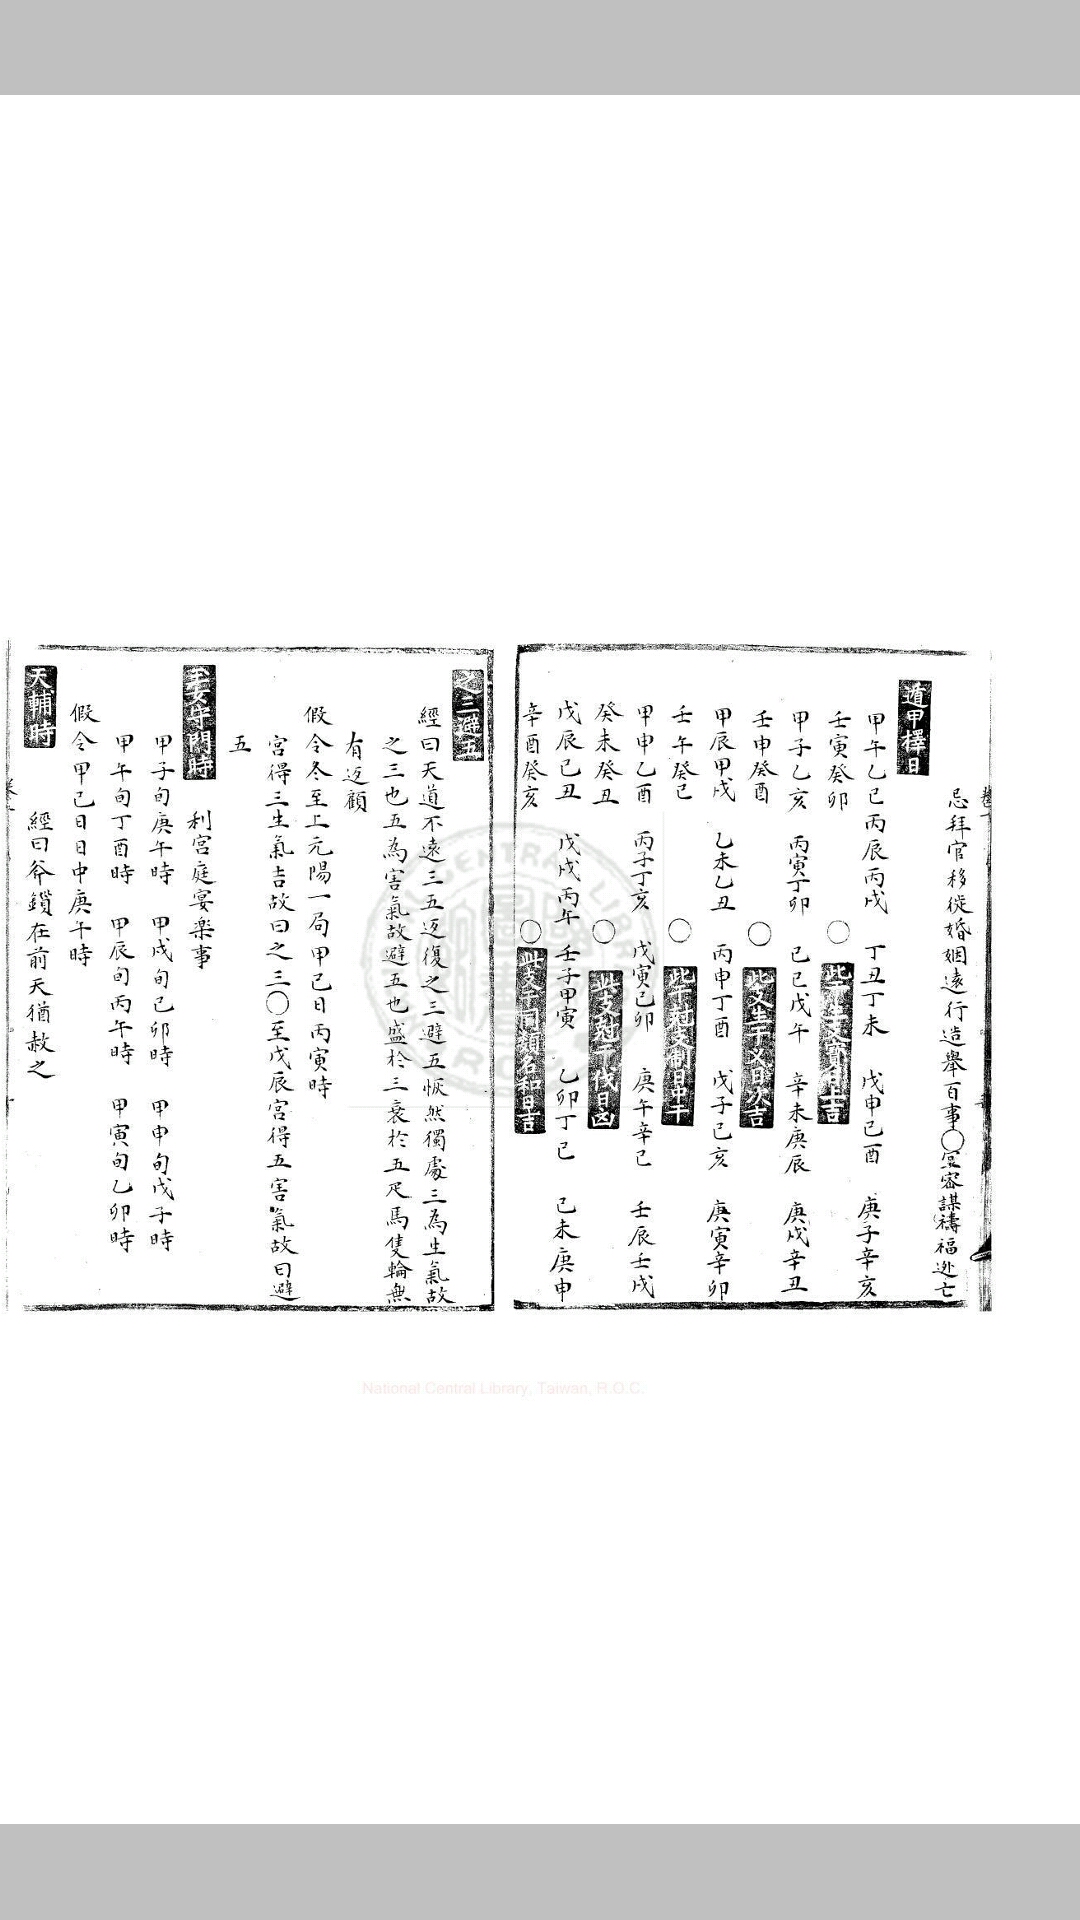 忌拜官移徙婚姻遠行造舉百事○宜密謀禱福逃亡
遁甲擇日
甲午乙巳丙辰丙戌 丁丑丁未 戊申己酉 庚子辛亥
壬寅癸卯 ○ 此干生支寶日上吉
甲子乙亥 丙寅丁卯 己巳戊午 辛未庚辰 庚戌辛丑
壬申癸酉 ○ 此支生干义日次吉
甲辰甲戌 乙未乙丑 丙申丁酉 戊子己亥 庚寅辛卯
壬午癸巳 ○ 此干尅支制日中平
甲申乙酉 丙子丁亥 戊寅己卯 庚午辛巳 壬辰壬戌
癸未癸丑 ○ 此支尅干伐日凶
戊辰己丑 戊戌丙午 壬子甲寅 乙卯丁巳 己未庚申
辛酉癸亥 ○ 此支干同類名和日吉
之三避五
經曰天道不遠三五返復之三避五恢然獨處三為生氣故
之三也五為害氣故避五也盛於三衰於五疋馬隻輪無
有返顧
假令冬至上元陽一局甲己日丙寅時
宮得三生氣吉故曰之三○至戊辰宮得五害氣故曰避
五
玉女守門時 利宮庭宴楽事
甲子旬庚午時 甲戌旬己卯時 甲申旬戊子時
甲午旬丁酉時 甲辰旬丙午時 甲寅旬乙卯時
假令甲己日日中庚午時
天輔時 經曰斧鎖在前天猶赦之
National Central Library, Taiwan, R.O.C.